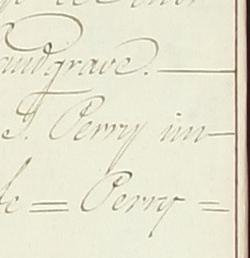 andgrave.
S. Perry im-
fe = Perry =